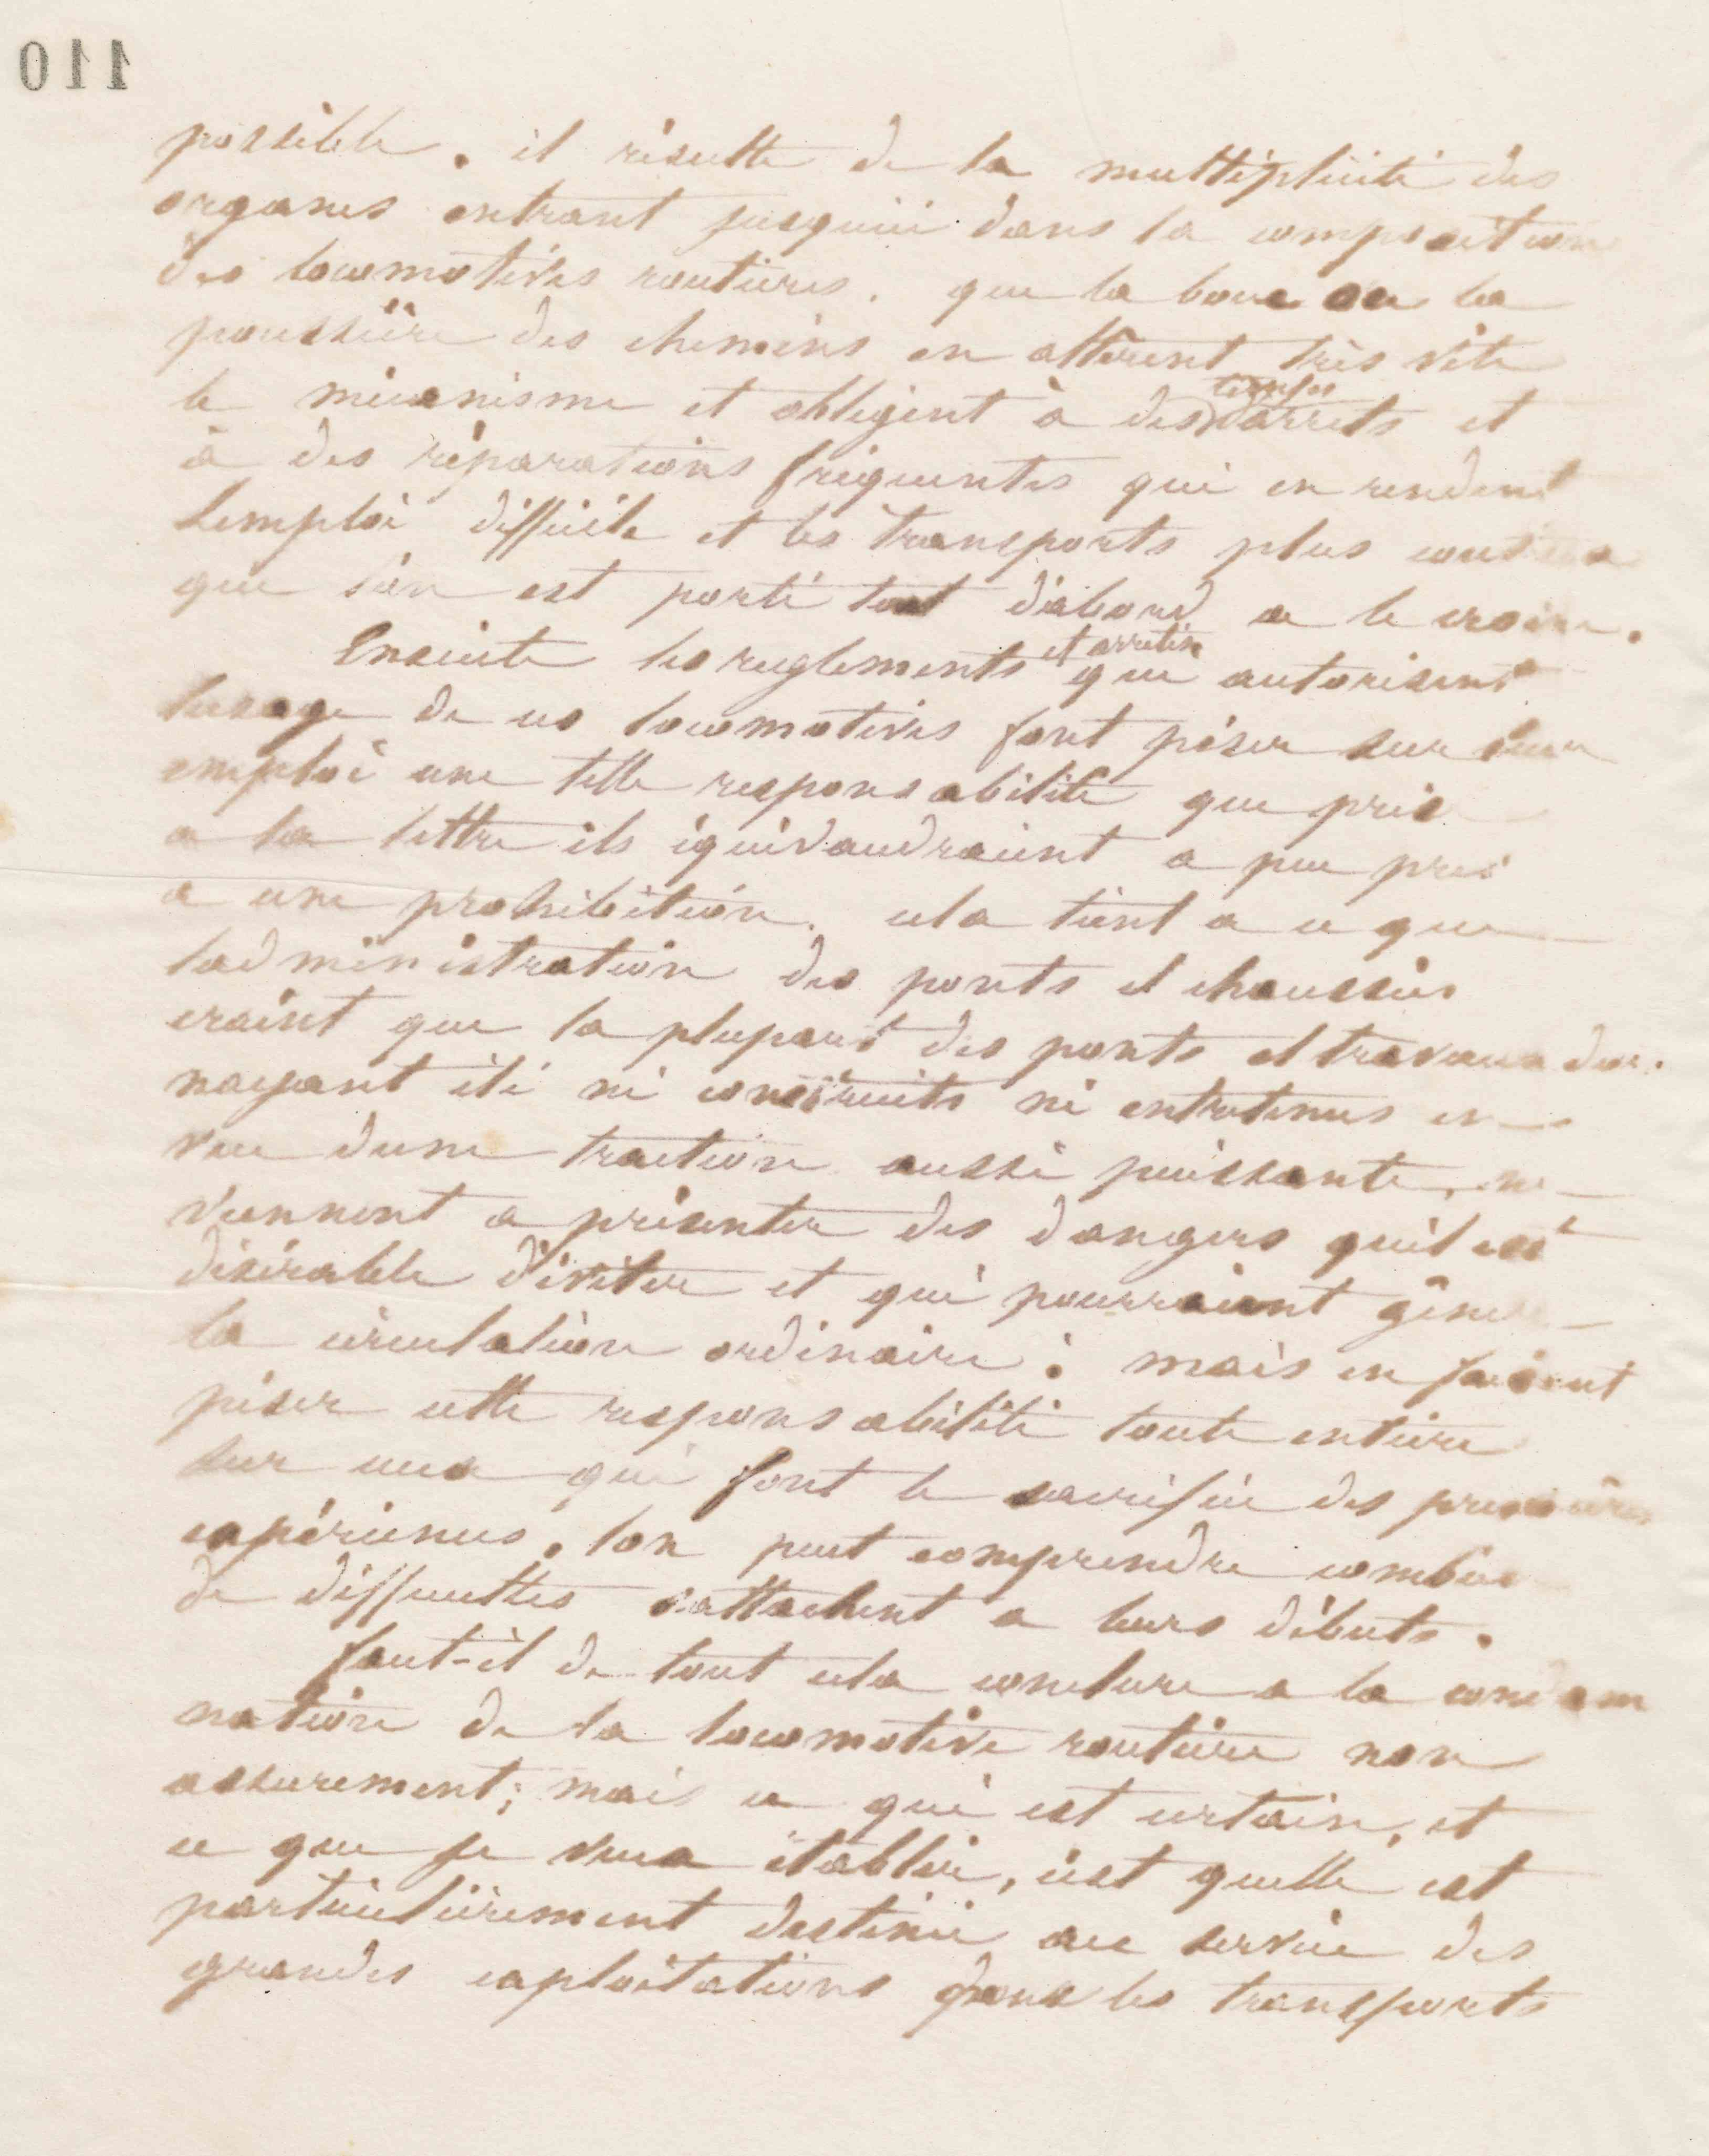 110
possible. il résulte de la multiplicité des
organes entrant jusqu'ici dans la composition
des locomotives routières. que la boue ou la
poussière des chemins en altèrent très vite
le mécanisme et obligent à des temps d'arrêts et
à des réparations fréquentes qui en rendent
l'emploi difficile et les transports plus
que l'on est porté tout d'abord a le croire.
Ensuite les règlements et arretés qui autorisent
lusage de ces locomotives font péser sur leur
emploi une telle responsabilité que pris
a la lettre ils équivaudraient a peu pres
a une prohibition. cela tient a ce que
ladministration des ponts et chaussées
craint que la plupart des ponts et travaux dar.
nayant été ni construits ni entretenus en
vue dune traction aussi puissante, ne
viennent a présenter des dangers quil est
désirable d'éviter et qui pourraient gêner
la circulation ordinaire : mais en faisant
péser cette responsabilité toute entière
sur ceux qui font le sacrifice des premières
expériences, lon peut comprendre combien
de difficultés sattachent a leurs débuts.
faut-il de tout cela conclure a la condam
nation de la locomotive routière non
assurement; mais ce qui est certain, et
ce que je veux établir, c'est quelle est
particulièrement destinée au service des
grandes exploitations dans les transports